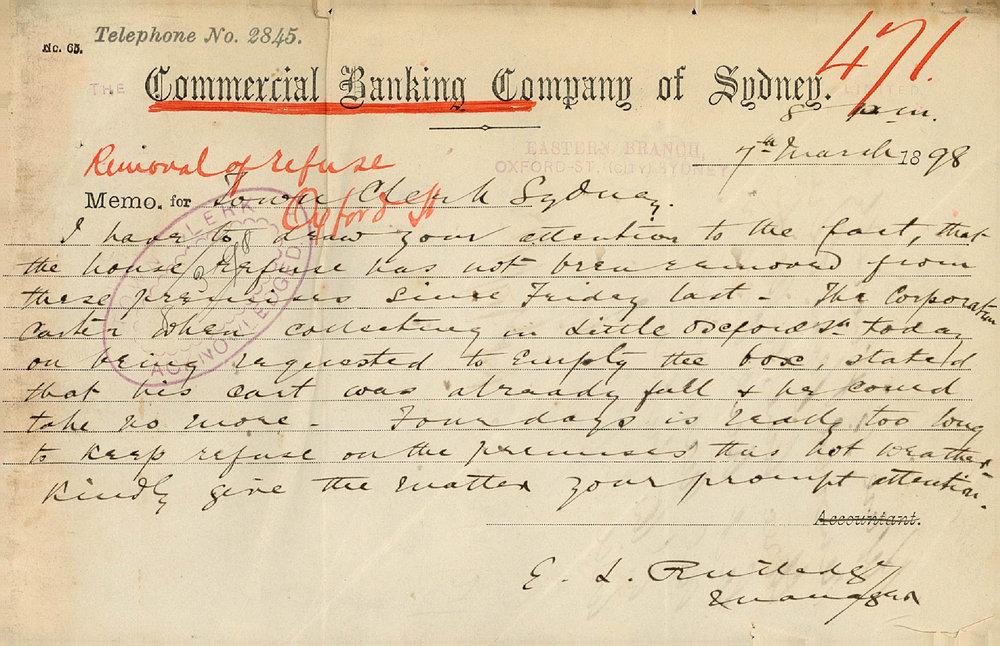 No. 65. Telephone No. 2845.
471.
THE Commercial Banking Company of Sydney. LIMITED.
8 p.m.
EASTERN BRANCH,
OXFORD-ST. (CITY) SYDNEY
7th March 1898
Removal of refuse
Oxford St
Memo. for Town Clerk Sydney.
I have to draw your attention to the fact, that
the house refuse has not been removed from
these premises since Friday last - The Corporation
carter when collecting in Little Oxford St today
on being requested to empty the box, stated
that his cart was already full & he could
take no more - Four days is really too long
to keep refuse on the premises this hot weather
Kindly give the matter your prompt attention.
Accountant.
E. L. Rutledge
Manager
CLERK
8/3/98
ACKNOWLEDGED